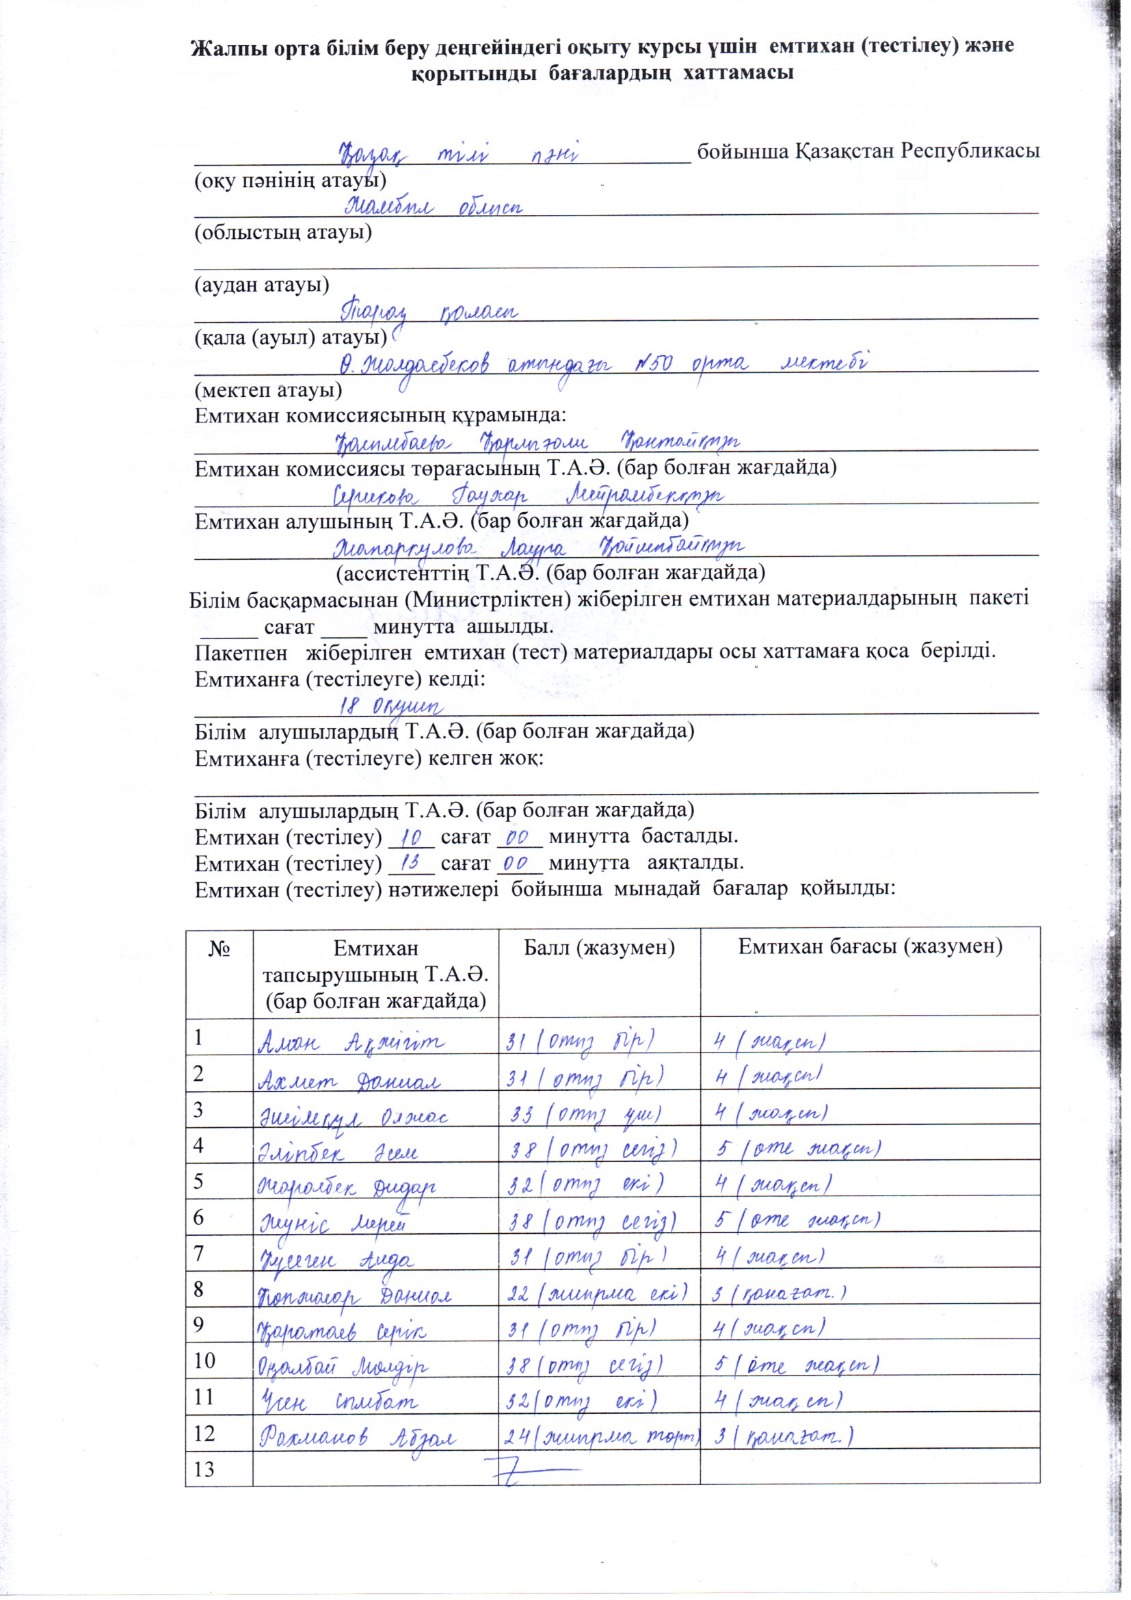 Жалпы орта білім беру деңгейіндегі оқыту курсы үшін емтихан (тестілеу) және
қорытынды бағалардың хаттамасы
Қазақ тілі пәні бойынша Қазақстан Республикасы
(оқу пәнінің атауы)
Жамбыл облысы
(облыстың атауы)
(аудан атауы)
Тараз қаласы
(қала (ауыл) атауы)
Ө. Жолдасбеков атындағы №50 орта мектебі
(мектеп атауы)
Емтихан комиссиясының құрамында:
Қасымбаева Қарлығаш Қантайқызы
Емтихан комиссиясы төрағасының Т.А.Ә. (бар болған жағдайда)
Серикова Гаухар Мейрамбекқызы
Емтихан алушының Т.А.Ә. (бар болған жағдайда)
Жапаркулова Лаура
(ассистенттің Т.А.Ә. (бар болған жағдайда)
Білім басқармасынан (Министрліктен) жіберілген емтихан материалдарының пакеті
_____ сағат ____ минутта ашылды.
Пакетпен жіберілген емтихан (тест) материалдары осы хаттамаға қоса берілді.
Емтиханға (тестілеуге) келді:
18 оқушы
Білім алушылардың Т.А.Ә. (бар болған жағдайда)
Емтиханға (тестілеуге) келген жоқ:
Білім алушылардың Т.А.Ә. (бар болған жағдайда)
Емтихан (тестілеу) 10 сағат 00 минутта басталды.
Емтихан (тестілеу) 13 сағат 00 минутта аяқталды.
Емтихан (тестілеу) нәтижелері бойынша мынадай бағалар қойылды:
№ Емтихан тапсырушының Т.А.Ә. (бар болған жағдайда) Балл (жазумен) Емтихан бағасы (жазумен)
1 Аман Ақжігіт 31 (отыз бір) 4 (жақсы)
2 Ахмет Даниал 31 (отыз бір) 4 (жақсы)
3 Әшімқұл Олжас 33 (отыз үш) 4 (жақсы)
4 Әліпбек Әсем 38 (отыз сегіз) 5 (өте жақсы)
5 Жаралбек Дидар 32 (отыз екі) 4 (жақсы)
6 Жүніс Мерей 38 (отыз сегіз) 5 (өте жақсы)
7 Күсеген Аида 31 (отыз бір) 4 (жақсы)
8 Көпжасар Даниал 22 (жиырма екі) 3 (қанағат.)
9 Қаратаев Серік 31 (отыз бір) 4 (жақсы)
10 Оңалбай Мөлдір 38 (отыз сегіз) 5 (өте жақсы)
11 Үсен Сымбат 32 (отыз екі) 4 (жақсы)
12 Рахманов Абзал 24 (жиырма төрт) 3 (қанағат.)
13